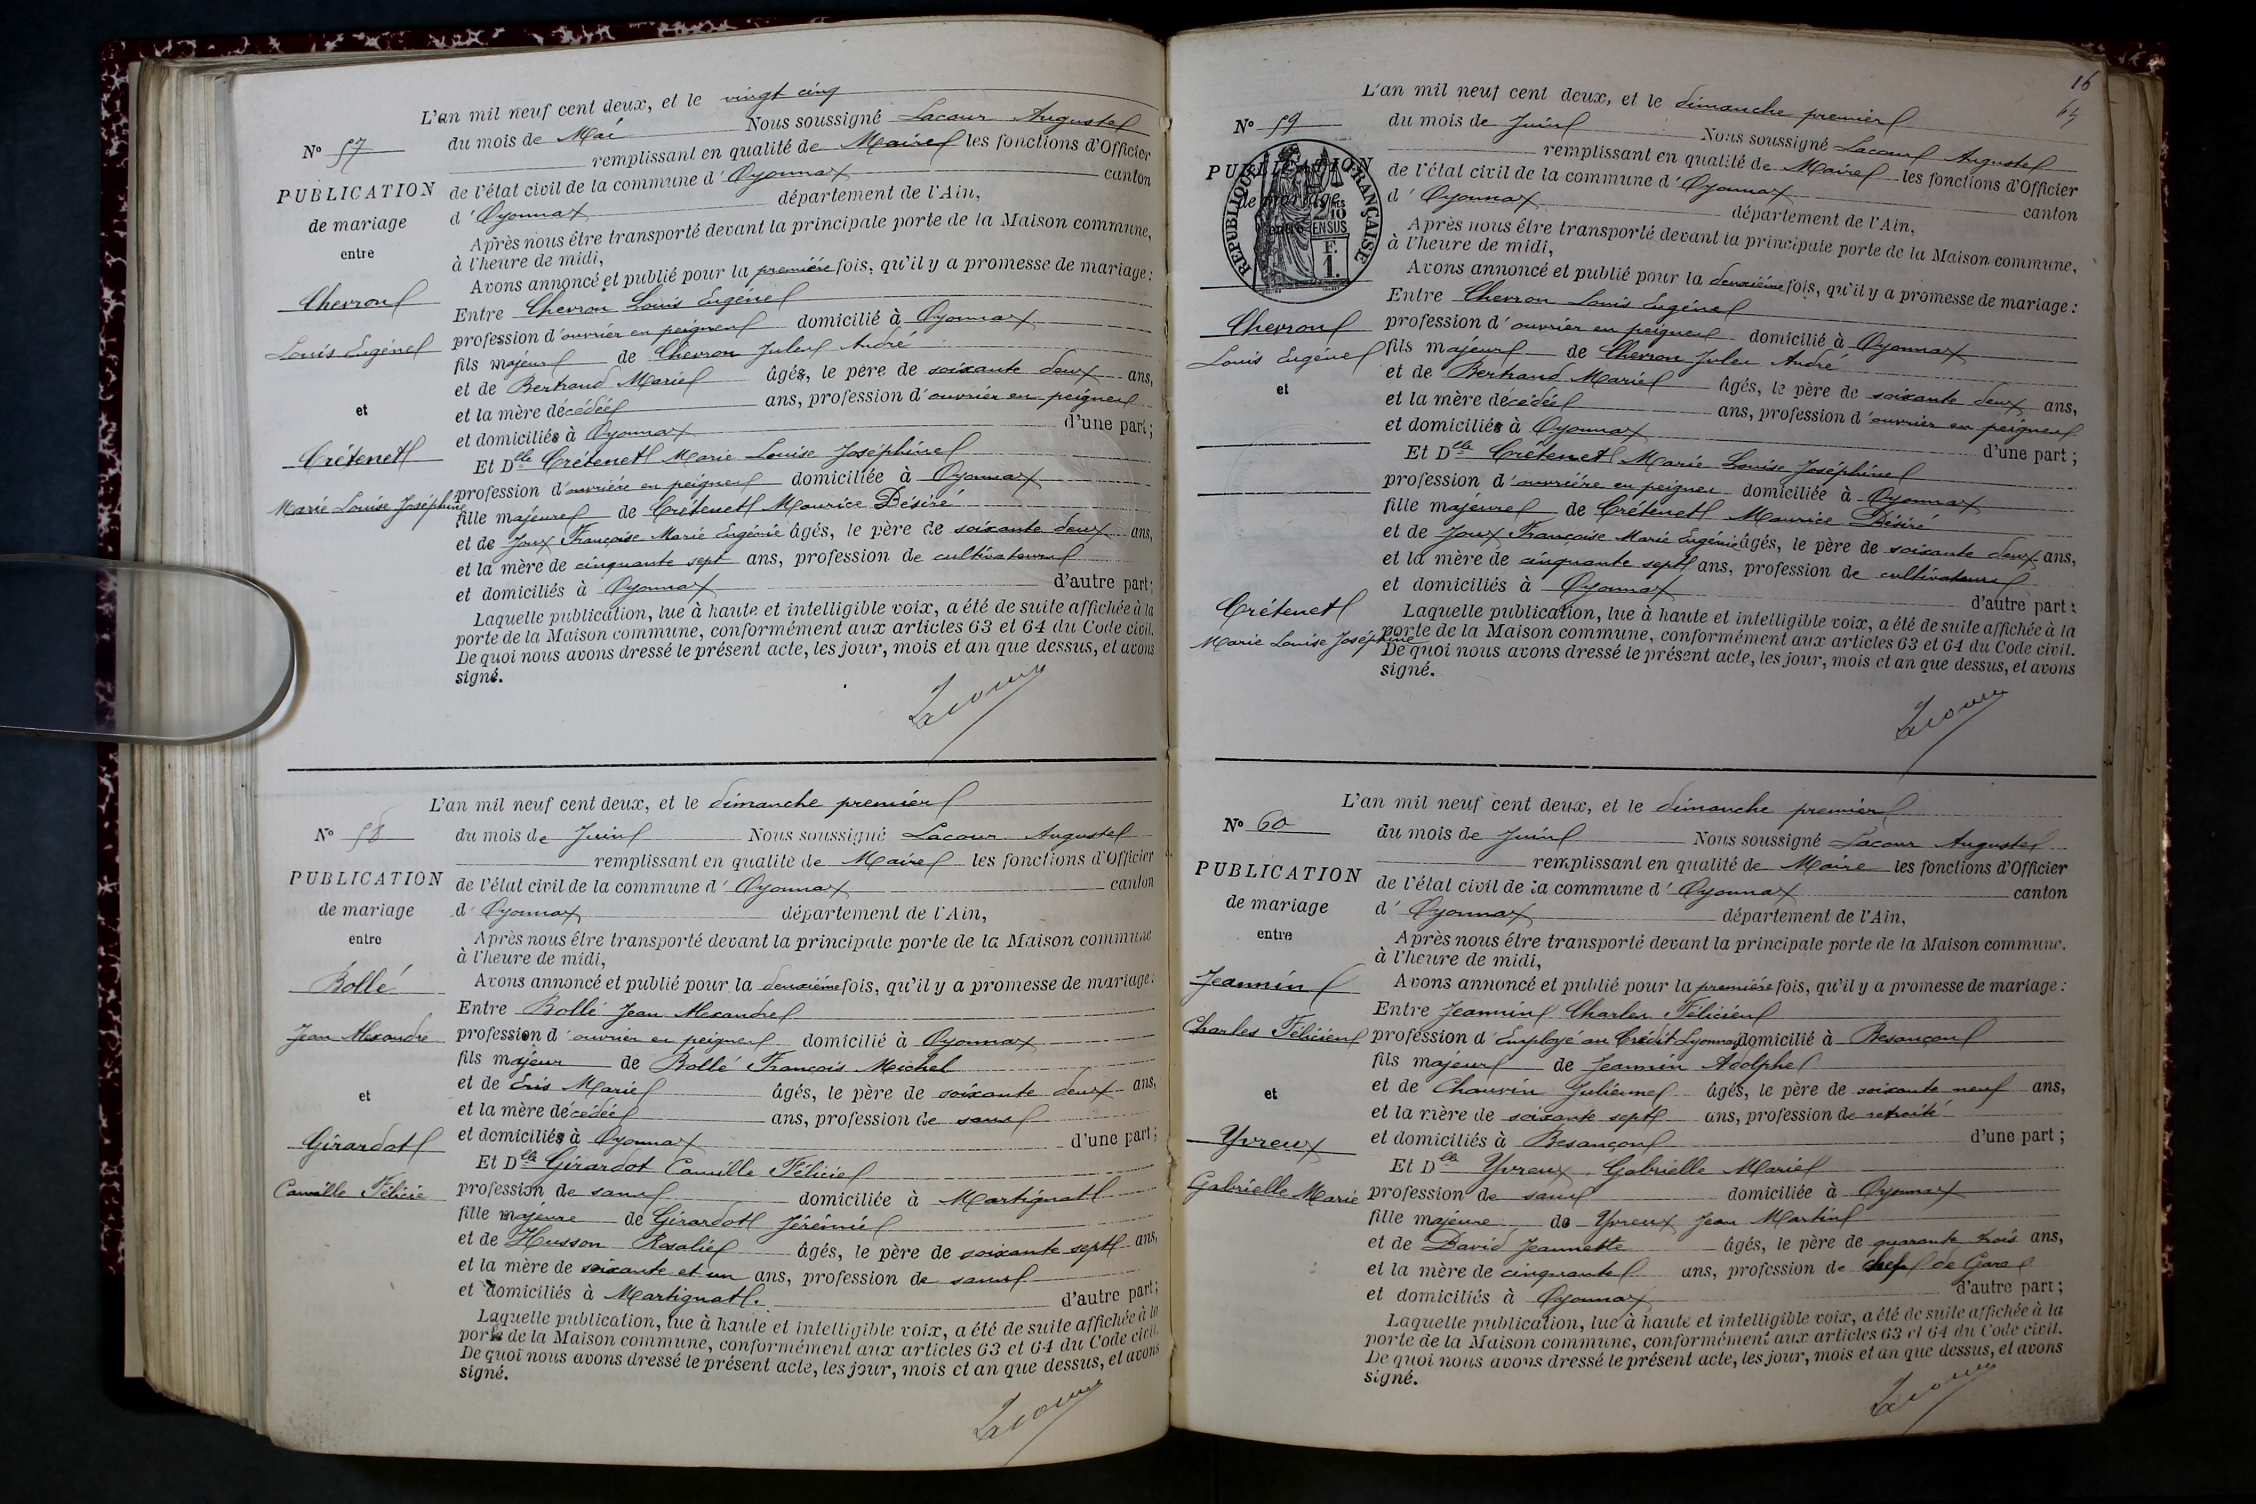 L'an mil neuf cent deux, et le vingt cinq
Nº 57
du mois de Mai Nous soussigné Lacour Auguste
remplissant en qualité de Maire les fonctions d'Officier
PUBLICATION
de l'état civil de la commune d'Oyonnax canton
de mariage
d'Oyonnax département de l'Ain,
entre
Après nous être transporté devant la principale porte de la Maison commune,
à l'heure de midi,
Avons annoncé et publié pour la première fois, qu'il y a promesse de mariage:
Chevron
Entre Chevron Louis Eugène
Louis Eugène
profession d'ouvrier en peignes domicilié à Oyonnax
fils majeur de Chevron Jules André
et de Bertrand Marie âgés, le père de soixante deux ans,
et
et la mère décédée ans, profession d'ouvrier en peignes
et domiciliés à Oyonnax d'une part;
Crétenet
Et Dlle Crétenet Marie Louise Joséphine
Marie Louise Joséphine
profession d'ouvrière en peignes domiciliée à Oyonnax
fille majeure de Crétenet Maurice Désiré
et de Joux Françoise Marie Eugénie âgés, le père de soixante deux ans,
et la mère de cinquante sept ans, profession de cultivateurs
et domiciliés à Oyonnax d'autre part;
Laquelle publication, lue à haute et intelligible voix, a été de suite affichée à la
porte de la Maison commune, conformément aux articles 63 et 64 du Code civil.
De quoi nous avons dressé le présent acte, les jour, mois et an que dessus, et avons
signé.
Lacour
L'an mil neuf cent deux, et le dimanche premier
Nº 58
du mois de Juin Nous soussigné Lacour Auguste
remplissant en qualité de Maire les fonctions d'Officier
PUBLICATION
de l'état civil de la commune d'Oyonnax canton
de mariage
d'Oyonnax département de l'Ain,
entre
Après nous être transporté devant la principale porte de la Maison commune
à l'heure de midi,
Avons annoncé et publié pour la deuxième fois, qu'il y a promesse de mariage:
Bollé
Entre Bollé Jean Alexandre
Jean Alexandre
profession d'ouvrier en peignes domicilié à Oyonnax
fils majeur de Bollé François Michel
et de Eris Marie âgés, le père de soixante deux ans,
et
et la mère décédée ans, profession de sans
et domiciliés à Oyonnax d'une part;
Girardot
Et Dlle Girardot Camille Félicie
Camille Félicie
profession de sans domiciliée à Martignat
fille majeure de Girardot Jérémie
et de Husson Rosalie âgés, le père de soixante sept ans,
et la mère de soixante et un ans, profession de sans
et domiciliés à Martignat. d'autre part;
Laquelle publication, lue à haute et intelligible voix, a été de suite affichée à la
porte de la Maison commune, conformément aux articles 63 et 64 du Code civil.
De quoi nous avons dressé le présent acte, les jour, mois et an que dessus, et avons
signé.
Lacour
16
64
L'an mil neuf cent deux, et le dimanche premier
Nº 59
du mois de Juin Nous soussigné Lacour Auguste
remplissant en qualité de Maire les fonctions d'Officier
PUBLICATION
de l'état civil de la commune d'Oyonnax canton
de mariage
d'Oyonnax département de l'Ain,
entre
RÉPUBLIQUE FRANÇAISE
2/10 EN SUS
F.
1.
Après nous être transporté devant la principale porte de la Maison commune,
à l'heure de midi,
Avons annoncé et publié pour la deuxième fois, qu'il y a promesse de mariage:
Entre Chevron Louis Eugène
Chevron
profession d'ouvrier en peignes domicilié à Oyonnax
Louis Eugène
fils majeur de Chevron Jules André
et
et de Bertrand Marie âgés, le père de soixante deux ans,
et la mère décédée ans, profession d'ouvrier en peignes
et domiciliés à Oyonnax d'une part;
Et Dlle Crétenet Marie Louise Joséphine
profession d'ouvrière en peignes domiciliée à Oyonnax
fille majeure de Crétenet Maurice Désiré
et de Joux Françoise Marie Eugénie âgés, le père de soixante deux ans,
et la mère de cinquante sept ans, profession de cultivateurs
et domiciliés à Oyonnax d'autre part;
Crétenet
Marie Louise Joséphine
Laquelle publication, lue à haute et intelligible voix, a été de suite affichée à la
porte de la Maison commune, conformément aux articles 63 et 64 du Code civil.
De quoi nous avons dressé le présent acte, les jour, mois et an que dessus, et avons
signé.
Lacour
L'an mil neuf cent deux, et le dimanche premier
Nº 60
du mois de Juin Nous soussigné Lacour Auguste
remplissant en qualité de Maire les fonctions d'Officier
PUBLICATION
de l'état civil de la commune d'Oyonnax canton
de mariage
d'Oyonnax département de l'Ain,
entre
Après nous être transporté devant la principale porte de la Maison commune,
à l'heure de midi,
Jeannin
Avons annoncé et publié pour la première fois, qu'il y a promesse de mariage:
Entre Jeannin Charles Félicien
Charles Félicien
profession d'Employé au Crédit Lyonnais domicilié à Besançon
fils majeur de Jeannin Adolphe
et
et de Chauvin Julienne âgés, le père de soixante neuf ans,
et la mère de soixante sept ans, profession de retraité
Yvreux
et domiciliés à Besançon d'une part;
Et Dlle Yvreux Gabrielle Marie
Gabrielle Marie
profession de sans domiciliée à Oyonnax
fille majeure de Yvreux Jean Martin
et de David Jeannette âgés, le père de quarante trois ans,
et la mère de cinquante ans, profession de chef de Gare
et domiciliés à Oyonnax d'autre part;
Laquelle publication, lue à haute et intelligible voix, a été de suite affichée à la
porte de la Maison commune, conformément aux articles 63 et 64 du Code civil.
De quoi nous avons dressé le présent acte, les jour, mois et an que dessus, et avons
signé.
Lacour